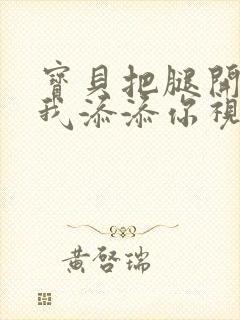 寶貝把腿開
我添添你視
黃啓瑞